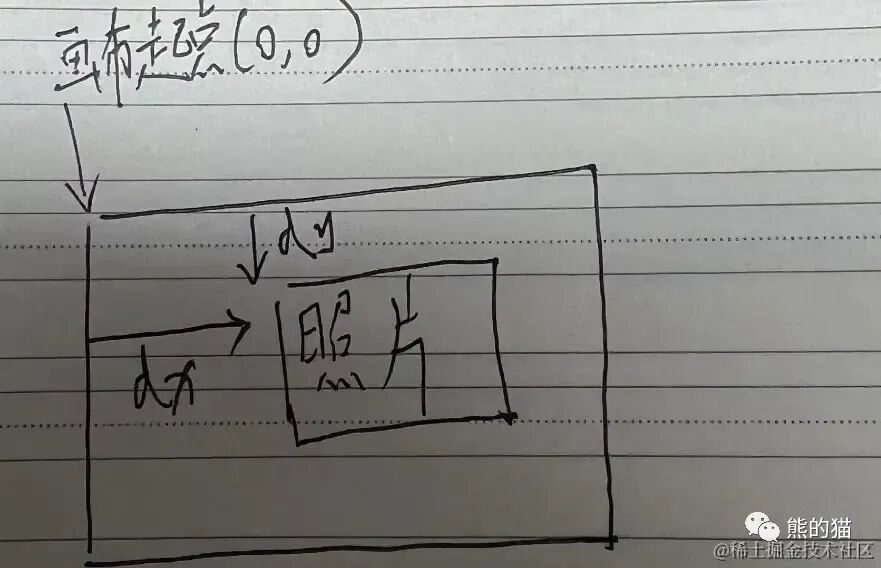 画布起点(0,0)
dy
照片
dx
熊的猫
@稀土掘金技术社区